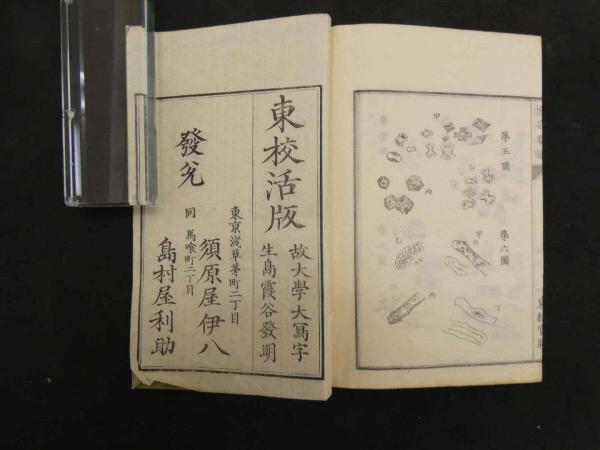 第五圖
甲
乙
第六圖
甲
乙
丙
丁
東校活版
故大學大寫字
生島霞谷發明
發兌
東京淺草茅町二丁目
須原屋伊八
同 馬喰町二丁目
島村屋利助